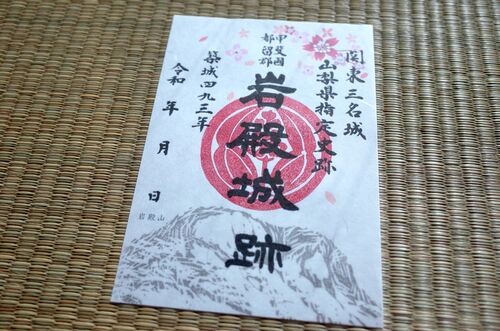 関東三名城
山梨県指定史跡
甲斐國
都留郡
岩殿城跡
築城四九三年
令和 年 月 日
岩殿山